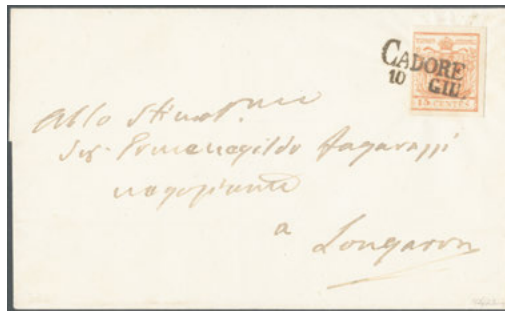 CADORE
10 GIU.
15 CENTES
Allo Stimat.
Sig. Ermenegildo
negoziante
a
Longaron